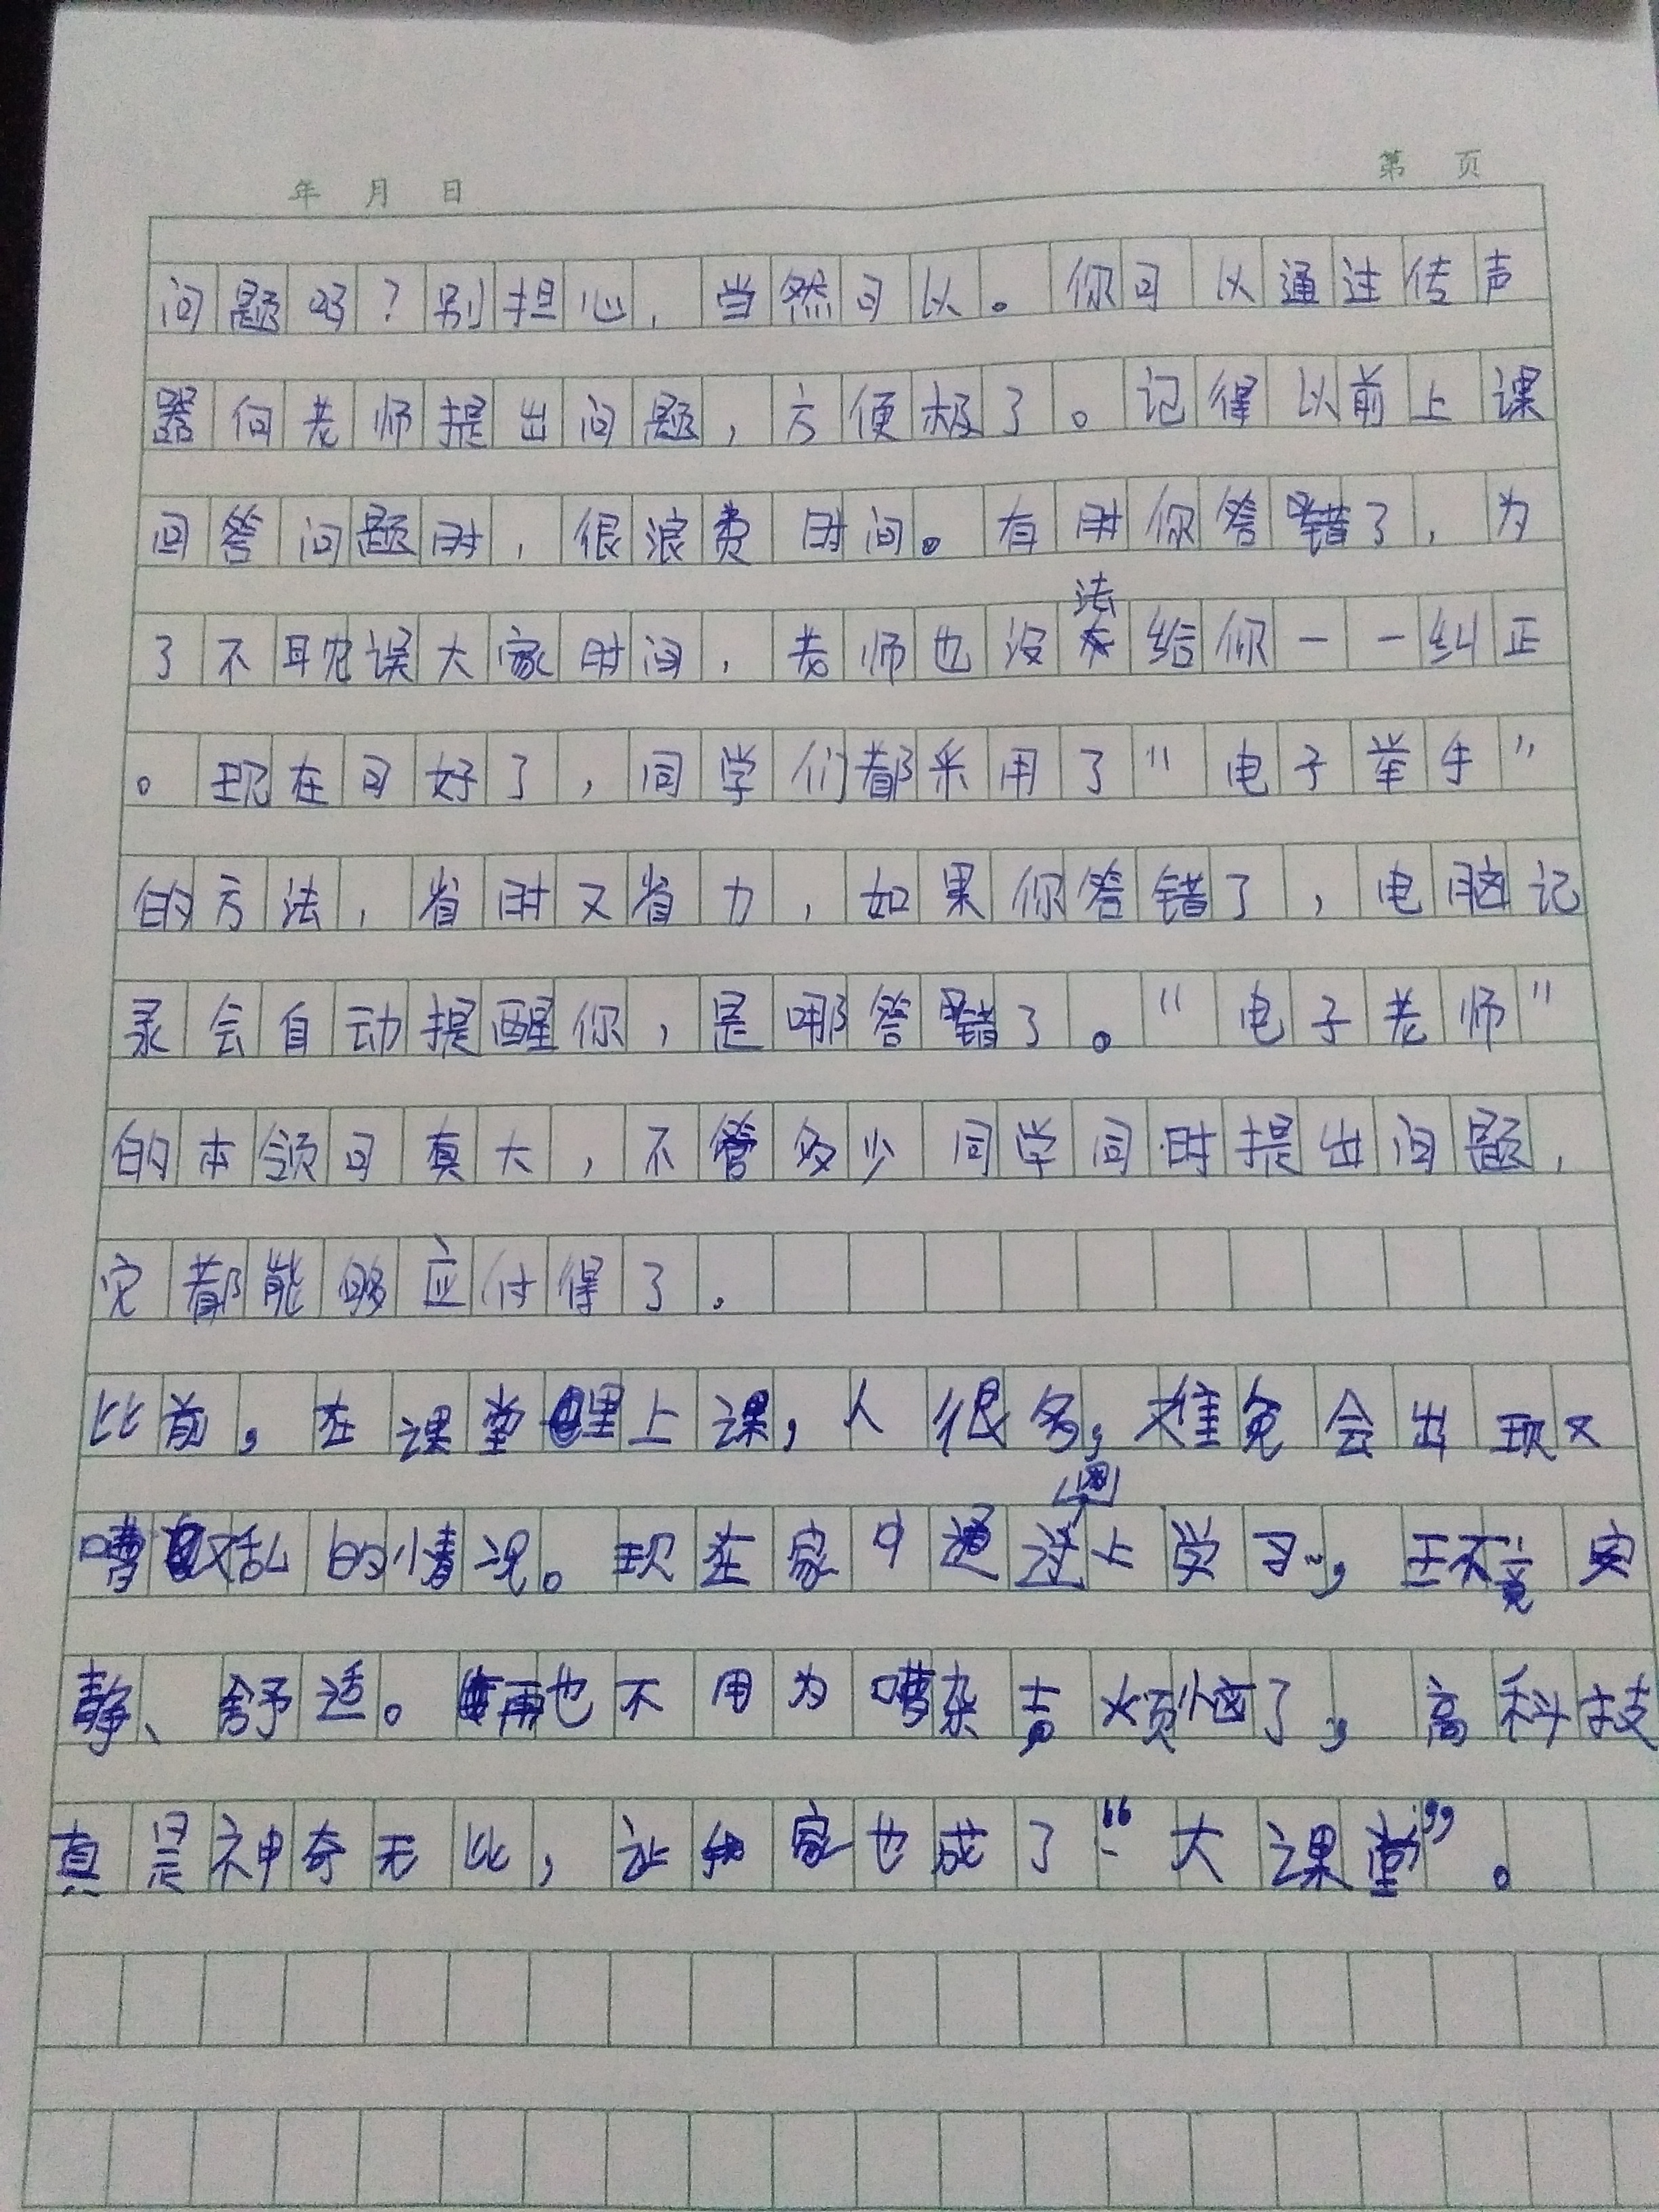 年 月 日
第 页
问题吗？别担心，当然可以。你可以通过传声
器向老师提出问题，方便极了。记得以前上课
回答问题时，很浪费时间。有时你答错了，为
了不耽误大家时间，老师也没法给你一一纠正
。现在可好了，同学们都采用了“电子举手”
的方法，省时又省力，如果你答错了，电脑记
录会自动提醒你，是哪答错了。“电子老师”
的本领可真大，不管多少同学同时提出问题，
它都能够应付得了。
比前，在课堂里上课，人很多，难免会出现又
嘈又乱的情况。现在家中通过网上学习，环竟安
静、舒适。再也不用为嘈杂声烦恼了，高科技
真是神奇无比，让家也成了“大课堂”。